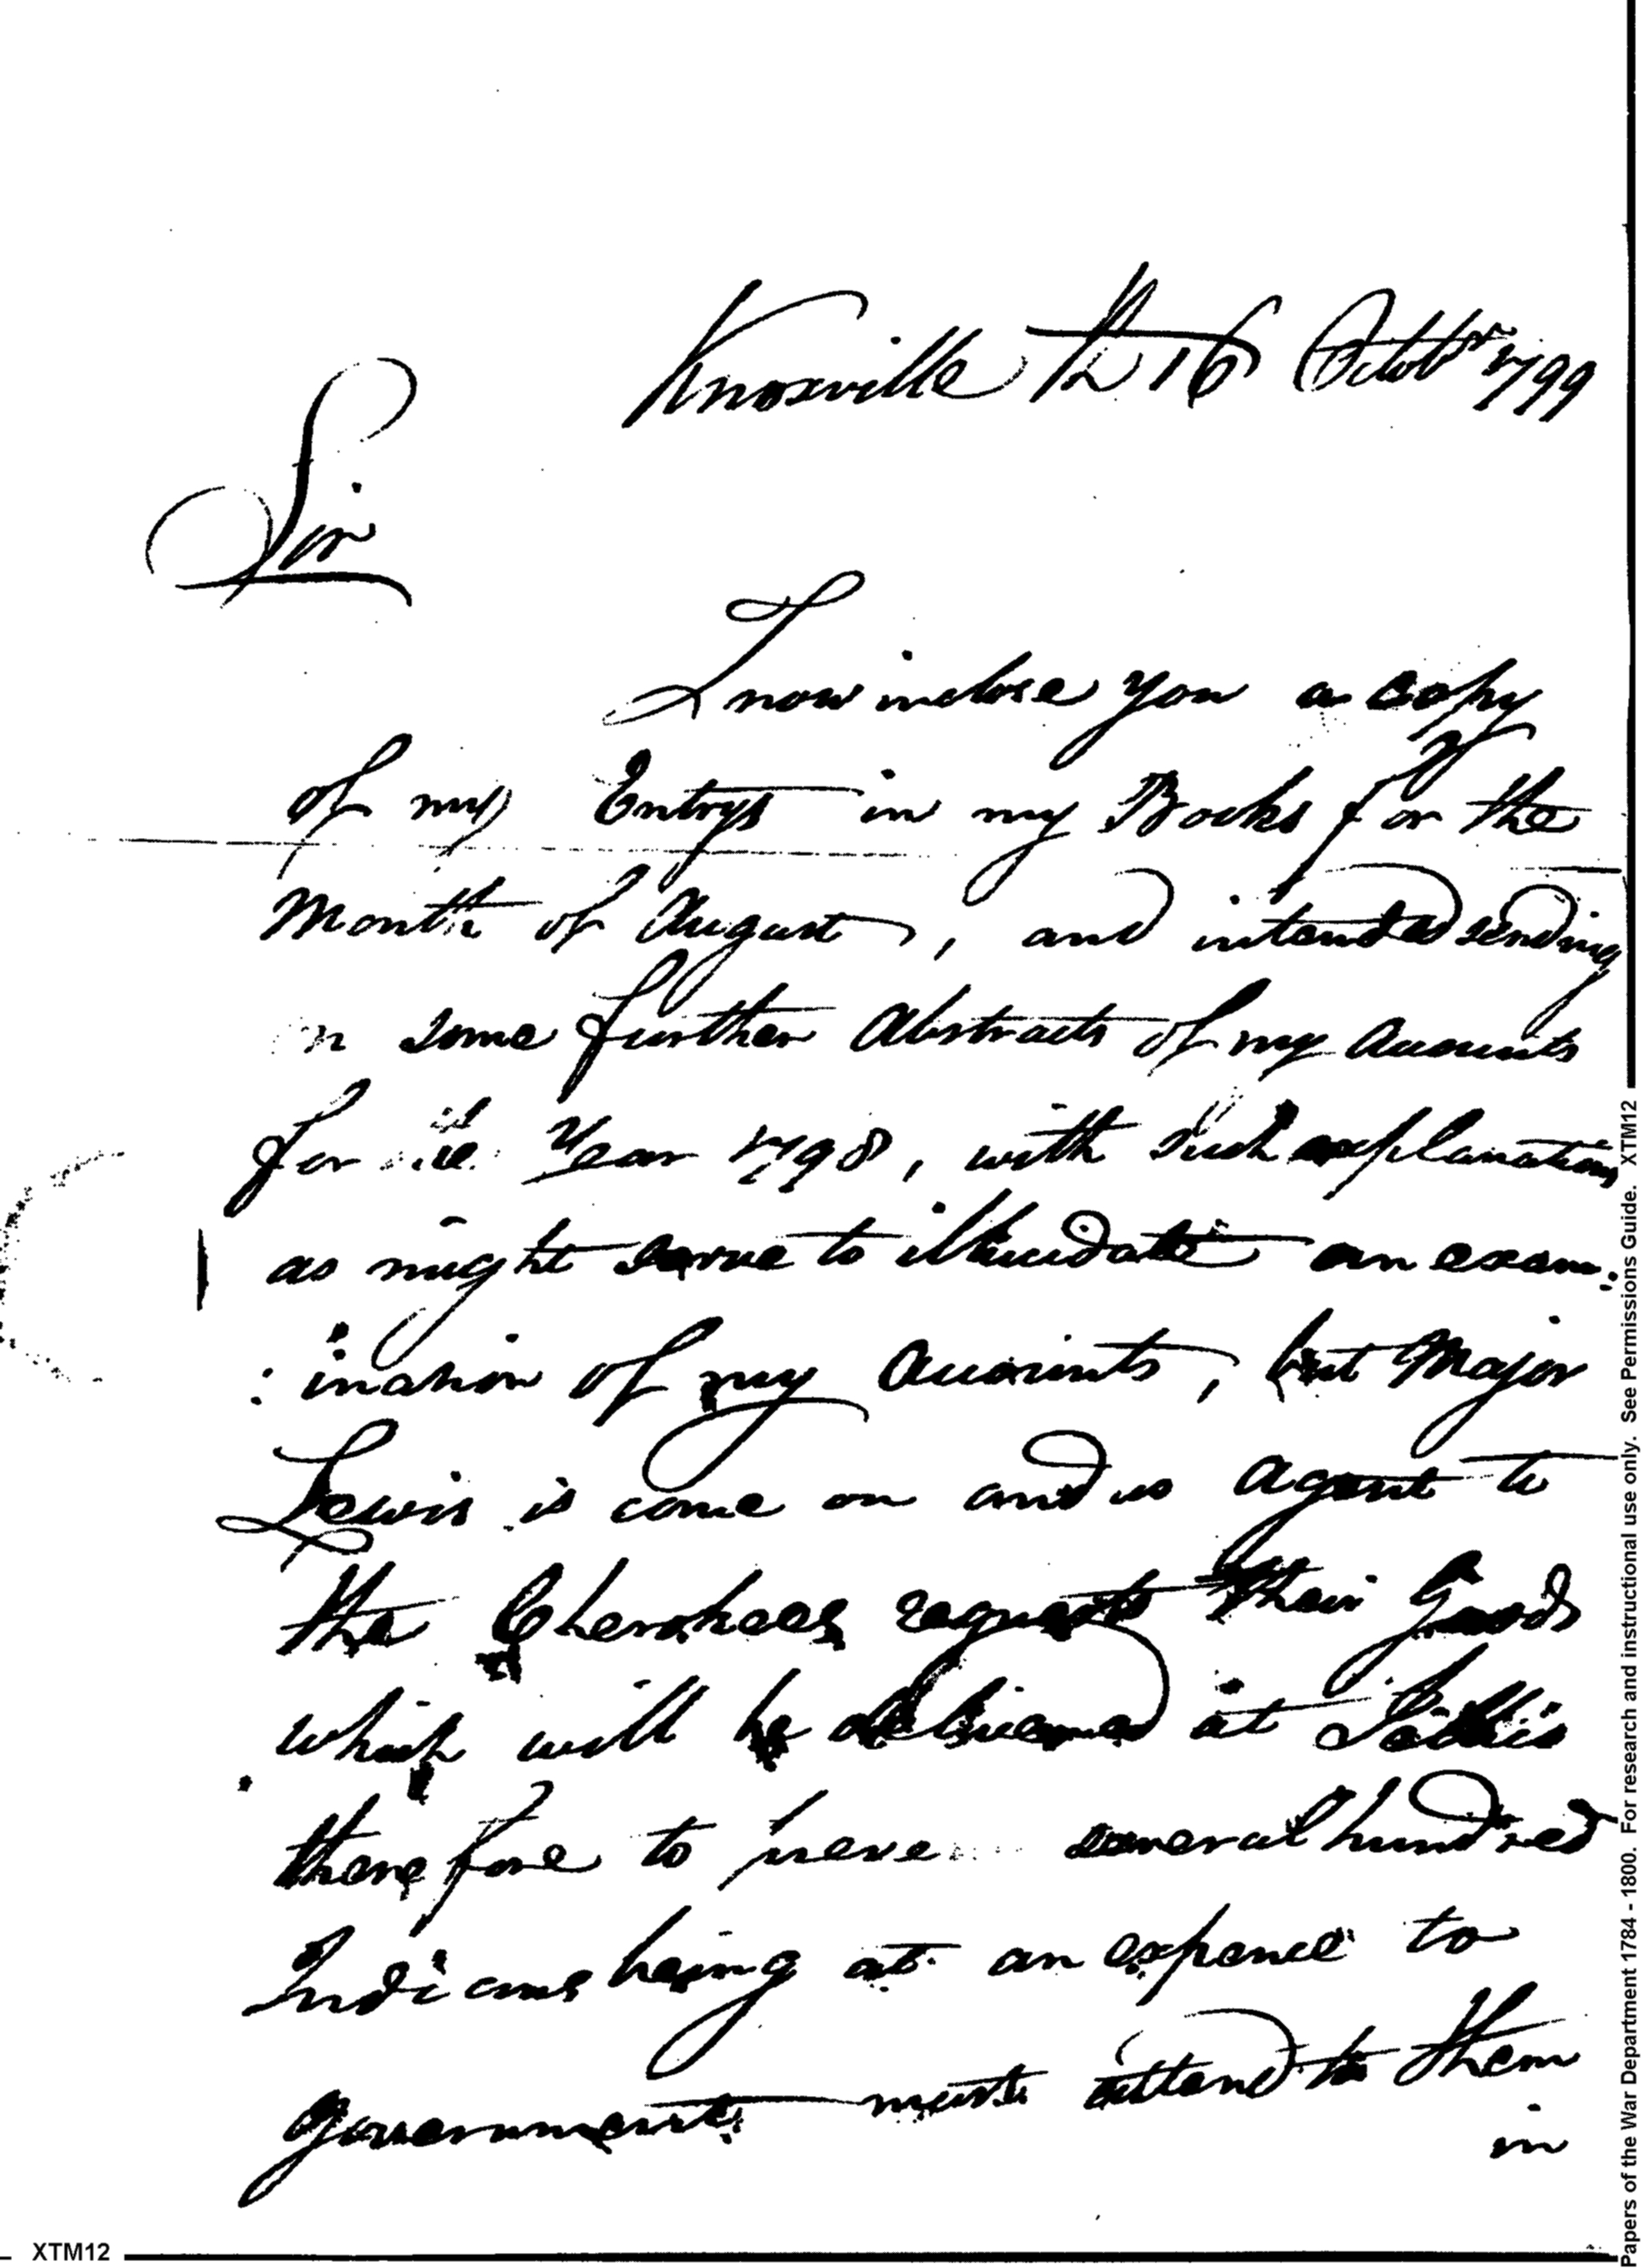 Knoxville the 16 Octobr 1799
Sir
I now inclose you a copy
of my Entrys in my Books for the
Month of August, and intended sending
in some further Abstracts of my Accounts
for the Year 1798, with such explanations
as might serve to illucidate an exam:
:ination of my Accounts, but Major
Lewis is come on and as agent to
the Cherokees requests their Goods
which will be delivered at
therefore to several hundred
Indians being at an expence to
government must attend to them
in
XTM12
Papers of the War Department 1784 - 1800. For research and instructional use only. See Permissions Guide. XTM12